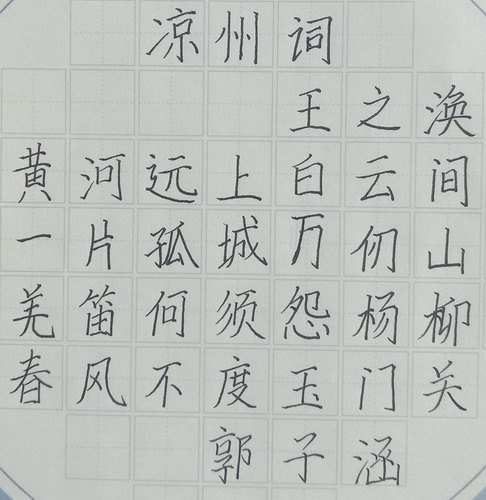 凉州词
王之涣
黄河远上白云间
一片孤城万仞山
羌笛何须怨杨柳
春风不度玉门关
郭子涵